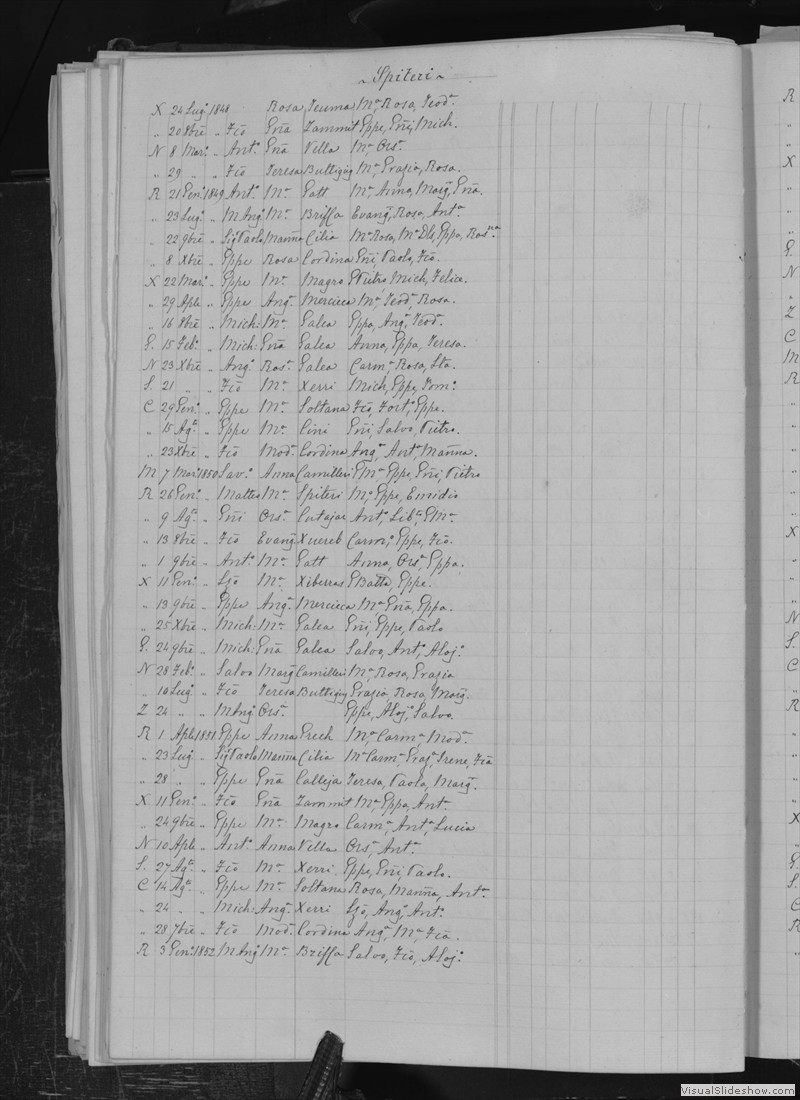 Spiteri
X 24 Lug.º 1848 Rosa Teuma Mª, Rosa, Teodª.
" 20 8bre " Fcõ Gnã Zammit Gppe, Gñi, Mich.
N 8 Mar.º " Ant.º Gnã Vella Mª, Orsª.
" 29 " " Fcõ Teresa Buttigieg Mª, Grazia, Rosa.
R 21 Gen.º 1849 Ant.º Mª Gatt Mª, Anna, Marg, Gnã.
" 23 Lug.º " MAng.º Mª Briffa Evang, Rosa, Antª
" 22 9bre " Sig Paolo Mariña Cilia Mª Rosa, Mª Dls, Gppa, Rosª
" 8 Xbre " Gppe Rosa Cordina Gñi, Paolo, Fcõ.
X 22 Mar.º " Gppe Mª Magro Pietro, Mich, Felice.
" 29 Aple " Gppe Angª Mercieca Mª, Teodª, Rosa.
" 16 8bre " Mich: Mª Galea Gppa, Angª, Teodª.
G. 15 Feb.º " Mich: Gnã Galea Anna, Gppa, Teresa.
N 23 Xbre " Ang.º Rosª Galea Carmª, Rosa,
S. 21 " " Fcõ Mª Xerri Mich, Gppe,
C 29 Gen.º " Gppe Mª Soltana Fcõ, Fort.º, Gppe.
" 15 Agª " Gppe Mª Cini Gñi, Salvo, Pietro.
" 23 Xbre " Fcõ Modª Cordina Angª, Antª, Mariña.
M 7 Mar.º 1850 Sav.º Anna Camilleri Gppe, Gñi, Pietro
R 26 Gen.º " Matteo Mª Spiteri Mª, Gppe, Emidio
" 9 Agª " Gñi Orsª Cutajar Ant.º, Libª,
" 13 8bre " Fcõ Evang Xuereb Carmª, Gppe, Fcõ.
" 1 9bre " Ant.º Mª Gatt Anna, Orsª, Gppa.
X 11 Gen.º " Ljõ Mª Xiberras GBatta, Gppe.
" 13 9bre " Gppe Angª Mercieca Mª, Gnã, Gppa.
" 25 Xbre " Mich: Mª Galea Gñi, Gppe, Paolo
G. 24 9bre " Mich: Gnã Galea Salvo, Ant.º, Aloj.º
N 28 Feb.º " Salvo Marg Camilleri Mª, Rosa, Grazia
" 10 Lug.º " Fcõ Teresa Buttigieg Grazia, Rosa, Marg.
Z 24 " " MAng.º Orsª Gppe, Aloj.º, Salvo.
R 1 Aple 1851 Gppe Anna Grech Mª Carmª Modª.
" 23 Lug.º " Sig Paolo Mariña Cilia Mª Carmª Graz, Irene, Fcã
" 28 " " Gppe Gnã Calleja Teresa, Paola, Marg.
X 11 Gen.º " Fcõ Gnã Zammit Mª, Gppa, Antª
" 24 9bre " Gppe Mª Magro Carmª, Antª, Lucia
N 10 Aple " Ant.º Anna Vella Orsª, Antª
S. 27 Agª " Fcõ Mª Xerri Gppe, Gñi, Paolo.
C 14 Agª " Gppe Mª Soltana Rosa, Mariña, Antª
" 24 " " Mich: Angª Xerri Ljõ, Ang.º, Ant.º
" 28 7bre " Fcõ Modª Cordina Angª, Mª, Fcã.
R 3 Gen.º 1852 MAng.º Mª Briffa Salvo, Fcõ, Aloj.º
VisualSlideshow.com